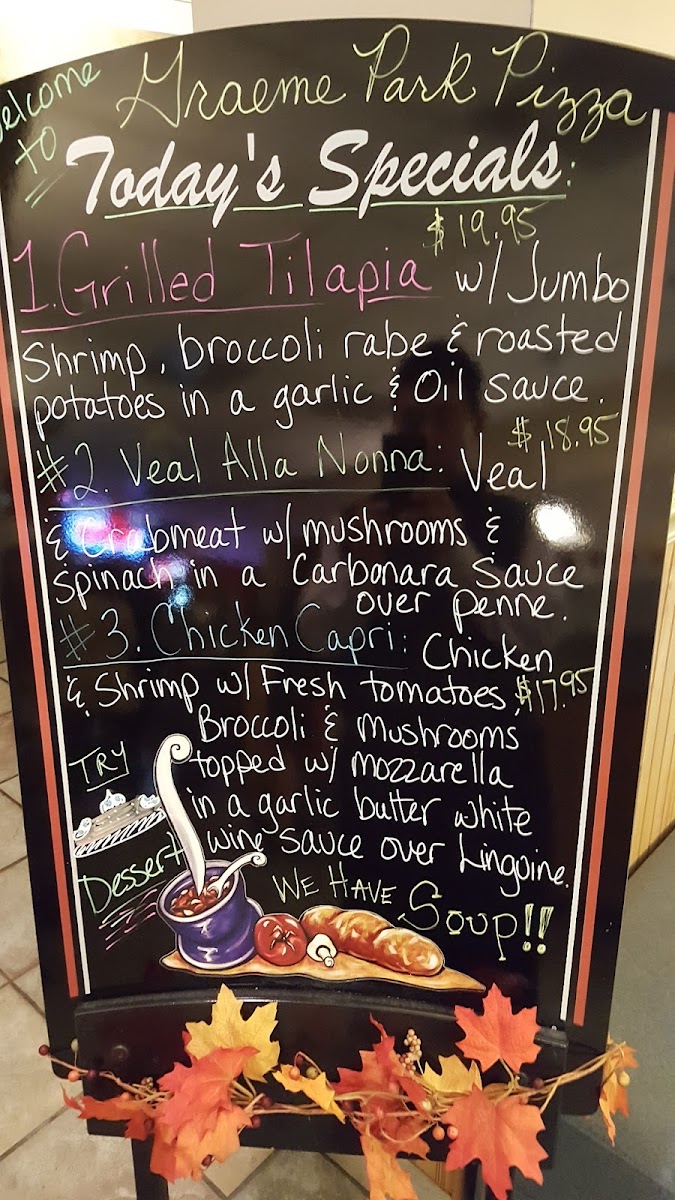 Welcome
to
Graeme Park Pizza
Today's Specials:
$19.95
1. Grilled Tilapia w/ Jumbo
Shrimp, broccoli rabe & roasted
potatoes in a garlic & Oil sauce.
$18.95
#2. Veal Alla Nonna: Veal
& Crabmeat w/ mushrooms &
Spinach in a Carbonara Sauce
over penne.
#3. Chicken Capri: Chicken
& Shrimp w/ Fresh tomatoes, $17.95
Broccoli & Mushrooms
topped w/ mozzarella
in a garlic butter white
wine sauce over Linguine.
TRY
Dessert
WE HAVE Soup!!